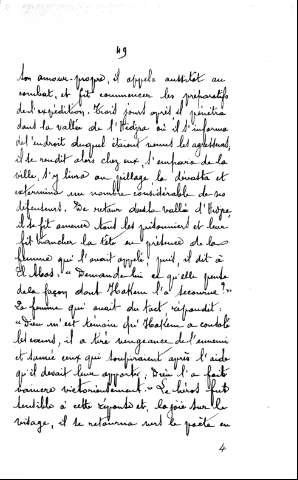 49
son amour-propre, il appela aussitôt au
combat, et fit commencer les préparatifs
de l'expédition. Trois jours après il pénétra
dans la vallée de l'Hedjra où il s'informa
de l'endroit duquel étaient venus les agresseurs,
il se rendit alors chez eux, s'empara de la
ville, s'y livra au pillage la dévasta et
extermina un nombre considérable de ses
défenseurs. De retour dans la vallée d'Hedjra,
il se fit amener tous les prisonniers et leur
fit trancher la tête en présence de la
femme qui l'avait appelé puis, il dit à
El Abbas: "Demande-lui ce qu'elle pense
de la façon dont Hakem l'a secourue?"
La femme qui avait du tact répondit:
"Dieu m'est témoin qu'Hakem a comblé
les cœurs, il a tiré vengeance de l'ennemi
et sauvé ceux qui soupiraient après l'aide
qu'il devait leur apporter, Dieu l'a fait
vaincre victorieusement." Le héros fut
sensible à cette réponse et, la joie sur le
visage, il se retourna vers le poète en
4